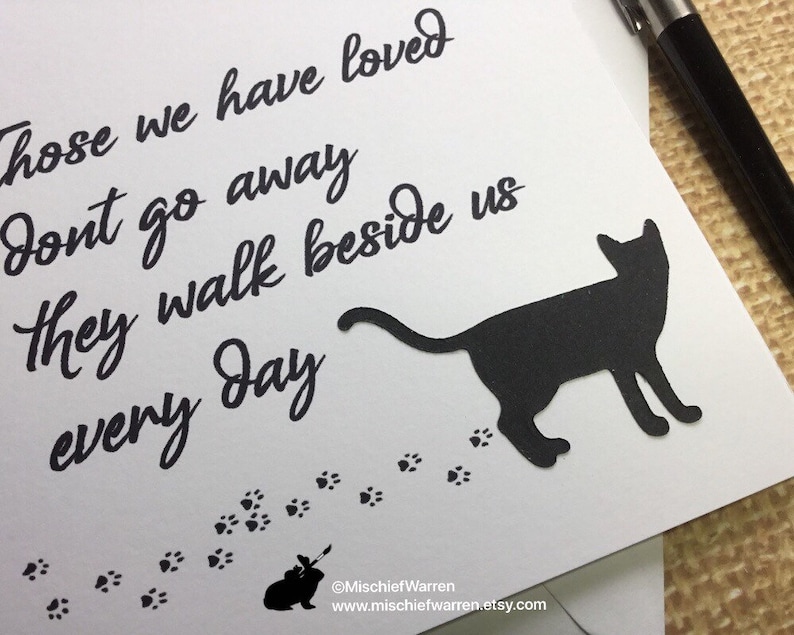 Those we have loved
dont go away
they walk beside us
every day
©MischiefWarren
www.mischiefwarren.etsy.com